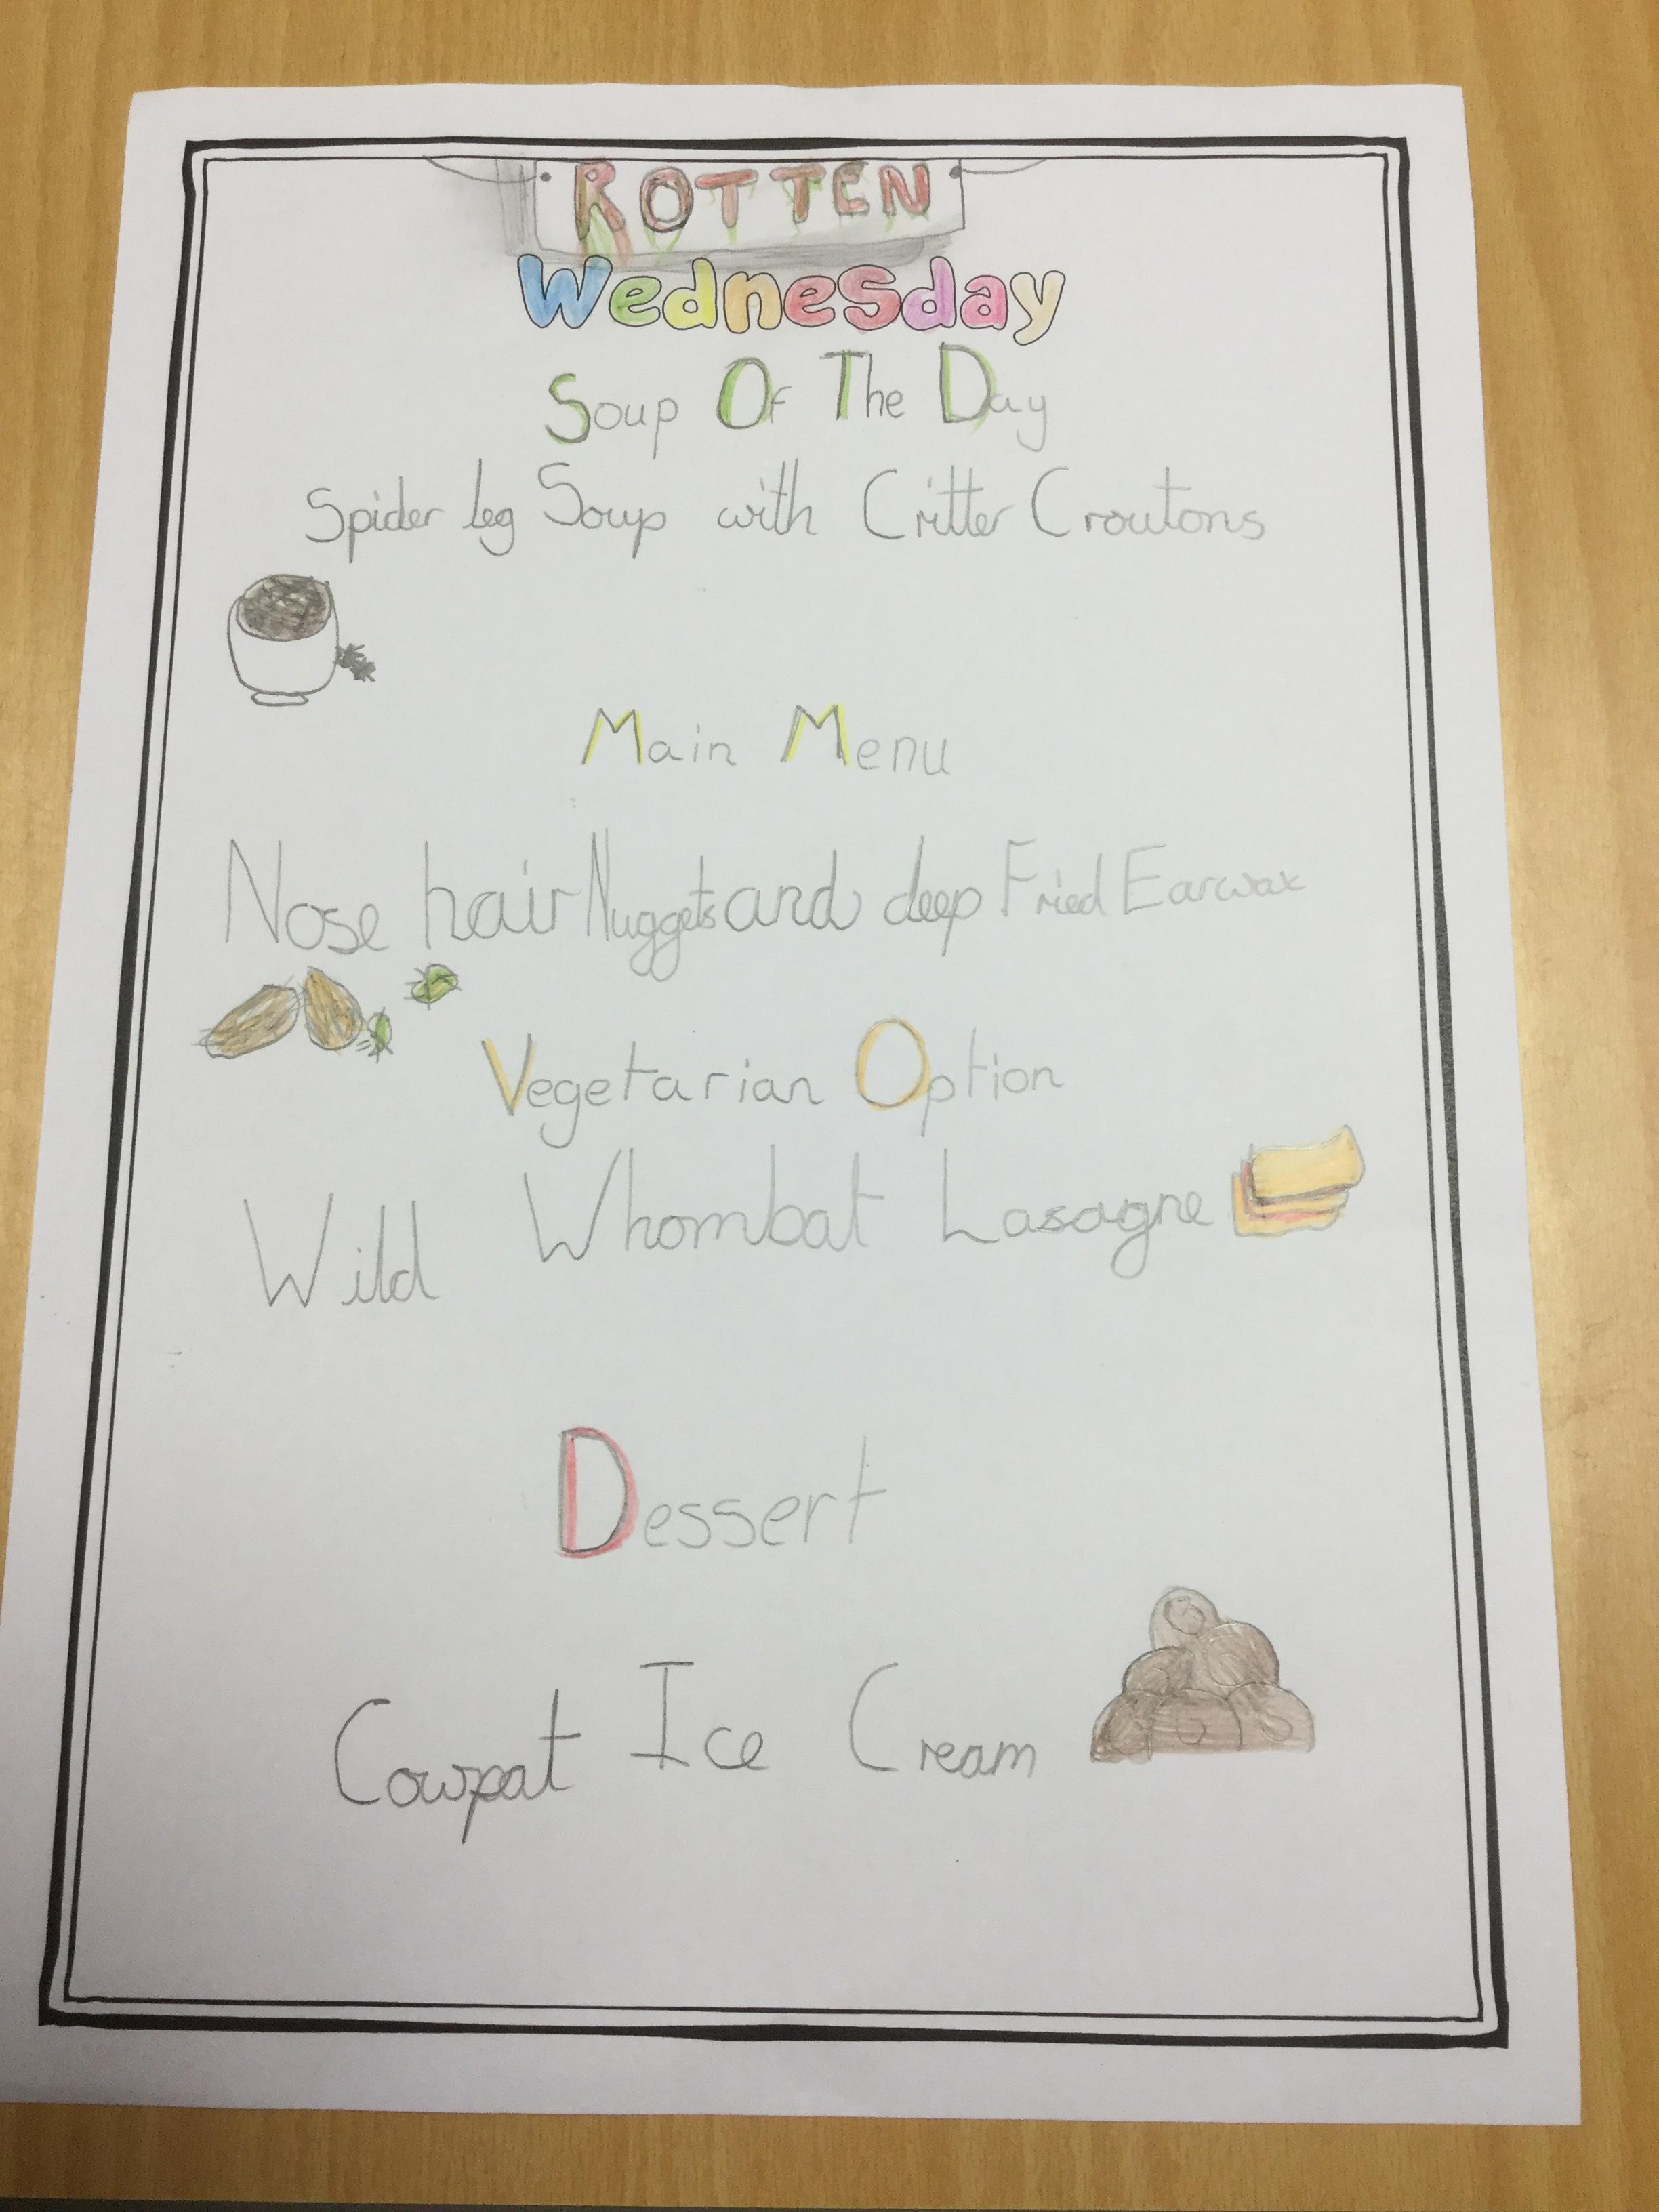 ROTTEN
Wednesday
Soup Of The Day
Spider leg Soup with Critter Croutons
Main Menu
Nose hair Nuggets and deep Fried Earwax
Vegetarian Option
Wild Whombat Lasagne
Dessert
Cowpat Ice Cream